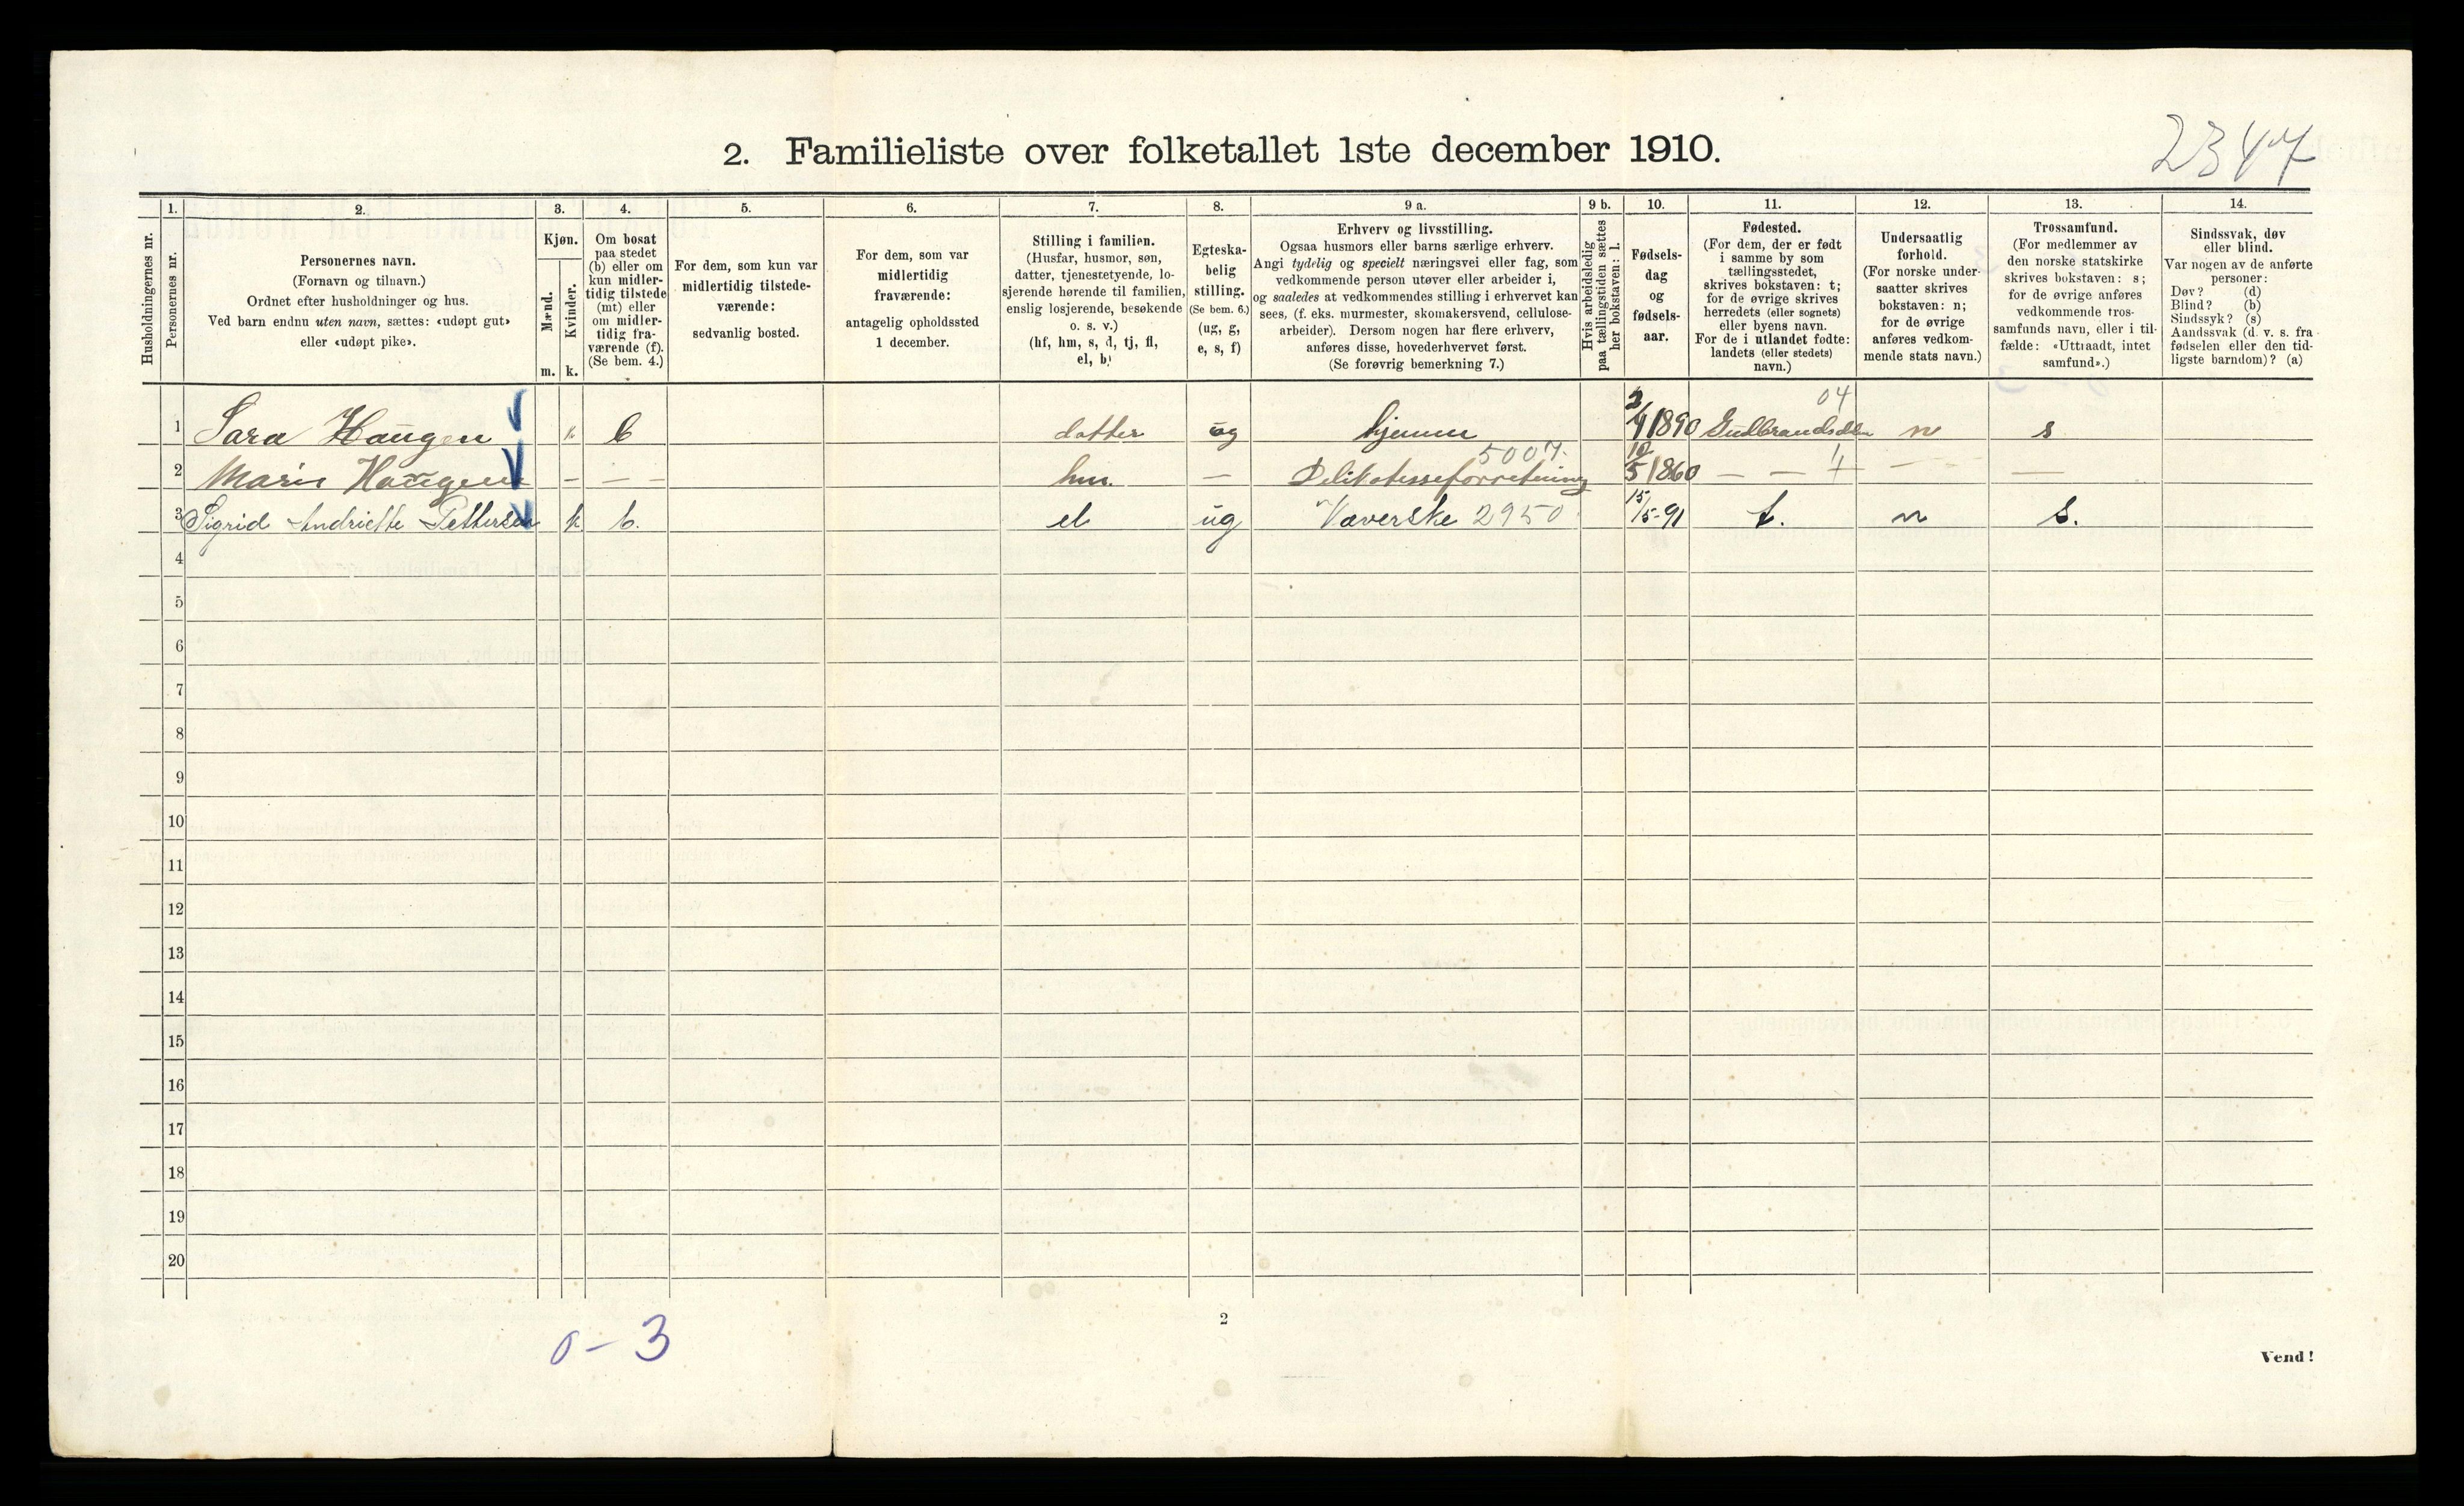 2347
2. Familieliste over folketallet 1ste december 1910.
Husholdningernes nr.
1.
Personernes nr.
2.
Personernes navn.
(Fornavn og tilnavn.)
Ordnet efter husholdninger og hus.
Ved barn endnu uten navn, sættes: «udøpt gut»
eller «udøpt pike».
3.
Kjøn.
Mænd.
m.
Kvinder.
k.
4.
Om bosat
paa stedet
(b) eller om
kun midler-
tidig tilstede
(mt) eller
om midler-
tidig fra-
værende (f).
(Se bem. 4.)
5.
For dem, som kun var
midlertidig tilstede-
værende:
sedvanlig bosted.
6.
For dem, som var
midlertidig
fraværende:
antagelig opholdssted
1 december.
7.
Stilling i familien.
(Husfar, husmor, søn,
datter, tjenestetyende, lo-
sjerende hørende til familien,
enslig losjerende, besøkende
o. s. v.)
(hf, hm, s, d, tj, fl,
el, b)
8.
Egteska-
belig
stilling.
(Se bem. 6.)
(ug, g,
e, s, f)
9 a.
Erhverv og livsstilling.
Ogsaa husmors eller barns særlige erhverv.
Angi tydelig og specielt næringsvei eller fag, som
vedkommende person utøver eller arbeider i,
og saaledes at vedkommendes stilling i erhvervet kan
sees, (f. eks. murmester, skomakersvend, cellulose-
arbeider). Dersom nogen har flere erhverv,
anføres disse, hovederhvervet først.
(Se forøvrig bemerkning 7.)
9 b.
Hvis arbeidsledig
paa tællingstiden sættes
her bokstaven: l.
10.
Fødsels-
dag
og
fødsels-
aar.
11.
Fødested.
(For dem, der er født
i samme by som
tællingsstedet,
skrives bokstaven: t;
for de øvrige skrives
herredets (eller sognets)
eller byens navn.
For de i utlandet fødte:
landets (eller stedets)
navn.)
12.
Undersaatlig
forhold.
(For norske under-
saatter skrives
bokstaven: n;
for de øvrige
anføres vedkom-
mende stats navn.)
13.
Trossamfund.
(For medlemmer av
den norske statskirke
skrives bokstaven: s;
for de øvrige anføres
vedkommende tros-
samfunds navn, eller i til-
fælde: «Uttraadt, intet
samfund».)
14.
Sindssvak, døv
eller blind.
Var nogen av de anførte
personer:
Døv? (d)
Blind? (b)
Sindssyk? (s)
Aandssvak (d. v. s. fra
fødselen eller den tid-
ligste barndom)? (a)
04
1 Sara Haugen k b datter ug hjemme 1890 Gudbrandsdalen n s
5007.
2 Marie Haugen — — — hm. — Delikatesseforretning 10/5 1860 — — — —
3 Sigrid Andriette Pettersen k b. el ug Væverske 2950 15/5-91 t. n s.
4
5
6
7
8
9
10
11
12
13
14
15
16
17
18
19
20
0 - 3
2
Vend!